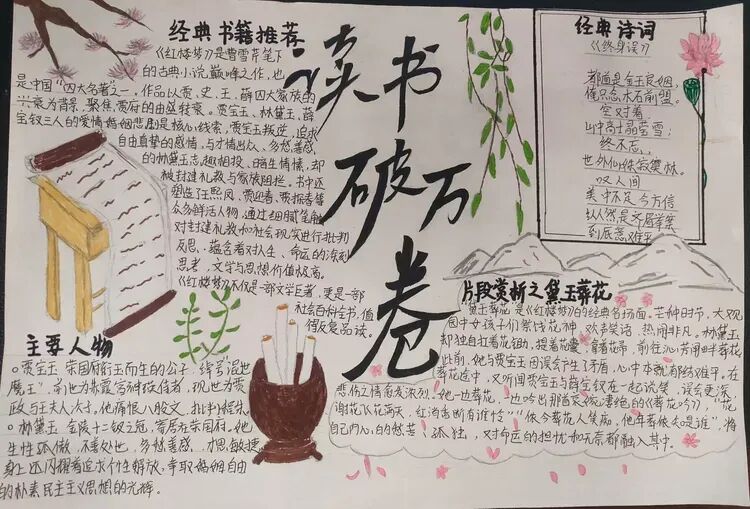 经典书籍推荐
《红楼梦》是曹雪芹笔下
的古典小说巅峰之作,也
是中国“四大名著”之一。作品以贾、史、王、薛四大家族的
兴衰为背景,聚焦贾府的由盛转衰。贾宝玉、林黛玉、薛
宝钗三人的爱情婚姻悲剧是核心线索,贾宝玉叛逆,追求
自由真挚的感情,与才情出众、多愁善感
的林黛玉志趣相投,暗生情愫,却
被封建礼教与家族阻拦。书中还
塑造了王熙凤、贾迎春、贾探春等
众多鲜活人物,通过细腻笔触
对封建礼教和社会现实进行批判
反思,蕴含着对人生、命运的深刻
思考,文学与思想价值极高。
《红楼梦》不仅是一部文学巨著,更是一部
社会百科全书,值
得反复品读。
读书
破万
卷
经典诗词
《终身误》
都道是金玉良姻,
俺只念木石前盟。
空对着
山中高士晶莹雪;
终不忘,
世外仙姝寂寞林。
叹人间
美中不足今方信
纵然是齐眉举案
到底意难平
主要人物
贾宝玉 荣国府衔玉而生的公子,绰号“混世
魔王”,前世为赤霞宫神瑛侍者,现世为贾
政与王夫人次子,他痛恨八股文,批判程朱。
林黛玉 金陵十二钗之冠,寄居在荣国府。她
生性孤傲,不善处世,多愁善感,才思敏捷。
身上还闪耀着追求个性解放、争取婚姻自由
的朴素民主主义思想的光辉。
片段赏析之黛玉葬花
“黛玉葬花”是《红楼梦》的经典名场面。芒种时节,大观
园中女孩子们祭饯花神,欢声笑语,热闹非凡。林黛玉
却独自扛着花锄,提着花囊,拿着花帚,前往沁芳闸畔葬花
此前,她与贾宝玉因误会产生了矛盾,心中本就郁结难平,在
葬花途中,又听闻贾宝玉与薛宝钗在一起说笑,误会更深,
悲伤之情愈发浓烈。她一边葬花,一边吟出那首哀婉凄绝的《葬花吟》,“花
谢花飞花满天,红消香断有谁怜”“侬今葬花人笑痴,他年葬侬知是谁”,将
自己内心的愁苦、孤独、对命运的担忧和无奈都融入其中。